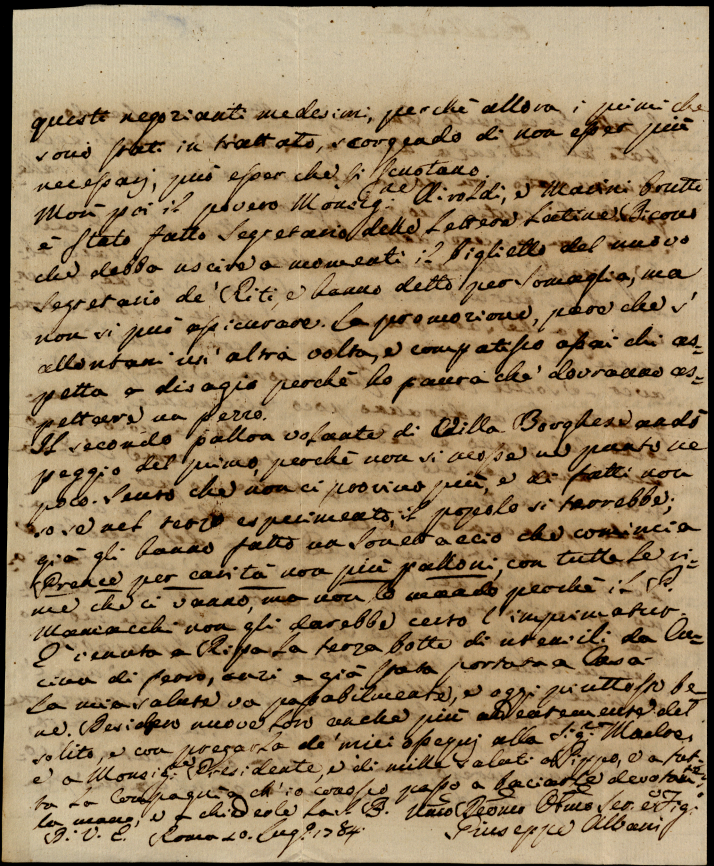 questi negozianti medesimi, perchè allora i primi che
sono stati in trattato, scorgendo di non esser più
necessarj, può esser che si scuotano.
Morì poi il povero Monsig.re Airoldi, e Marini brutti
è stato fatto Segretario delle Lettere Latine. Dicono
che debba uscire a momenti il biglietto del nuovo
Segretario de' Riti, e hanno detto per Somaglia, ma
non si può assicurare. La promozione, pare che s'
allontani un' altra volta, e compatisco assai chi as=
petta a disagio perchè ho paura che dovranno as=
pettare un pezzo.
Il secondo pallon volante di Villa Borghese andò
peggio del primo, perchè non si mosse ne punto ne
poco. Sento che non ci provino più, e di fatti non
so se nel terzo esperimento, il popolo si terrebbe;
già gli hanno fatto un Sonettaccio che comincia
Prence per carità non più palloni, con tutte le ri=
me che ci vanno, ma non lo mando perchè il P.
Mamacchi non gli darebbe certo l' imprimatur.
E' venuta a Ripa la terza botte di utensili da Cu=
cina di ferro, anzi è già stata portata a Casa.
La mia salute va passabilmente, e oggi piuttosto be=
ne. Desidero nuove loro anche più del
solito, e con pregarla de' miei ossequj alla Sig.ra Madre,
e a Monsig.re Presidente, e di mille saluti a Pippo, e a tut=
ta la Compagnia ch' io conosco passo a baciarle
la mano, e a chiederle la S. B.
D. V. E. Roma 10. Lug.o 1784.
Giuseppe Albani